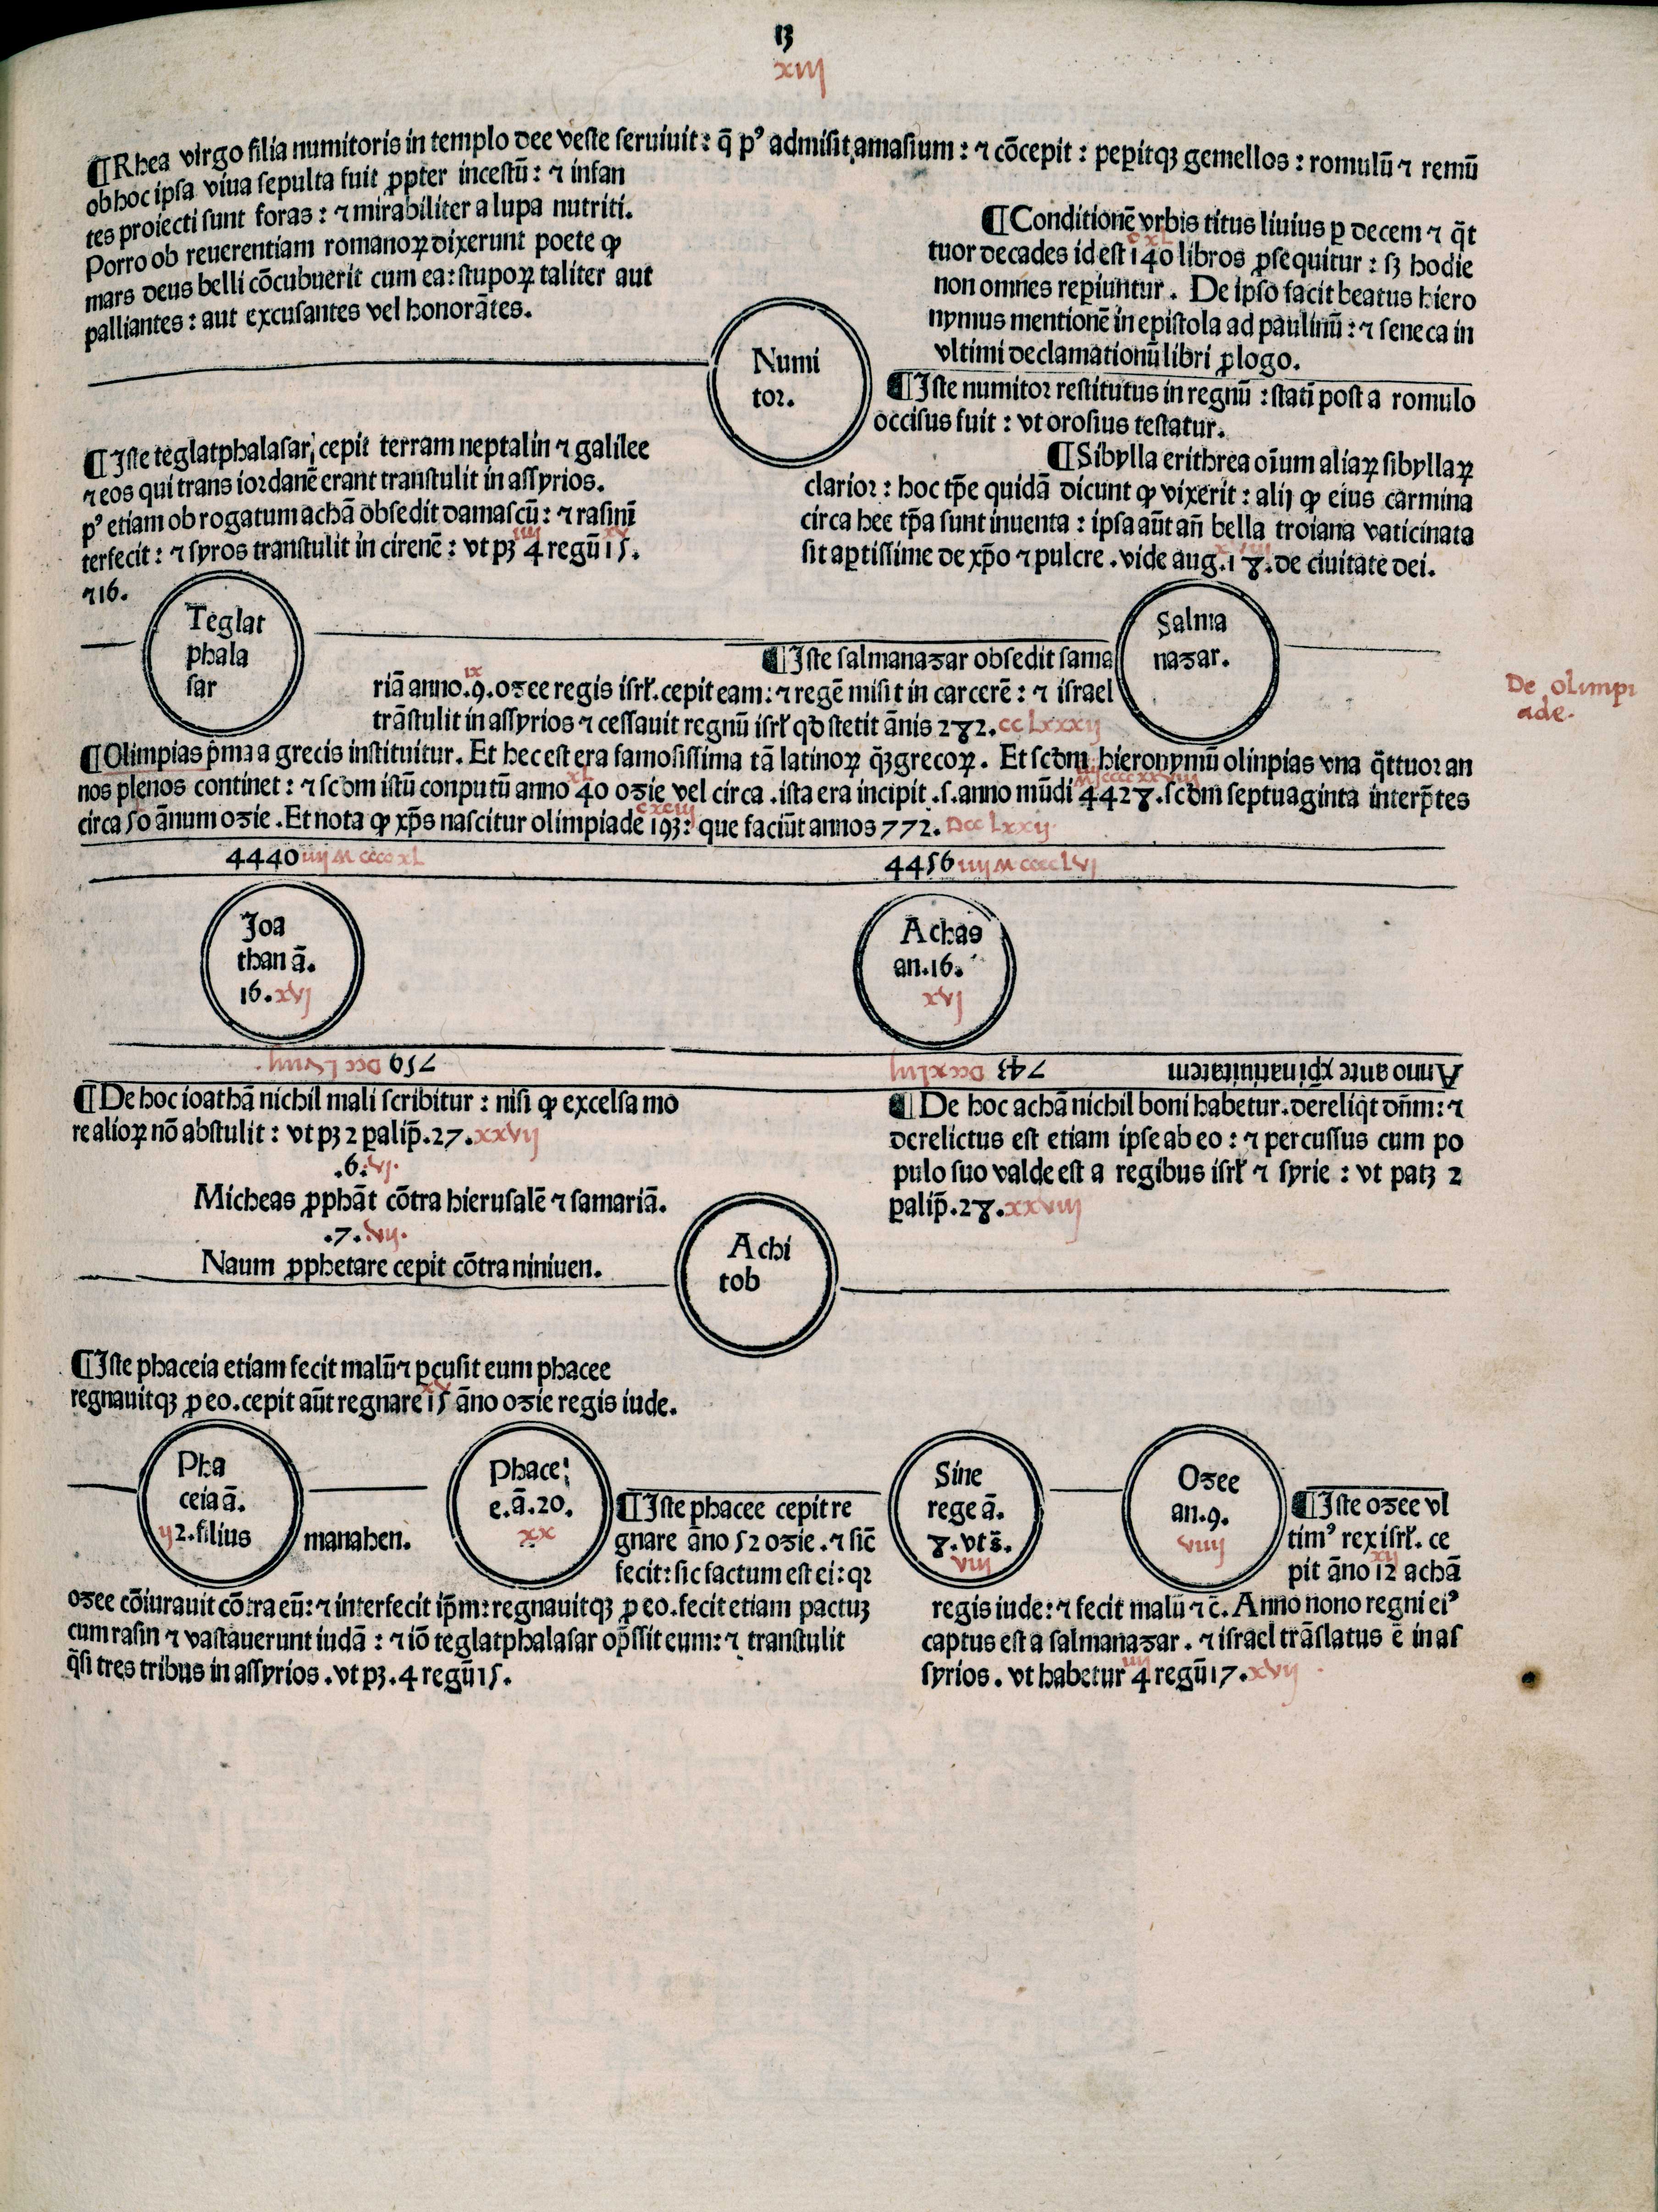 13
xiij
¶Rhea virgo filia numitoris in templo dee veste seruiuit: q̄ pꝰ admisit amasium: ⁊ cōcepit: peꝑitqꝫ gemellos: romulū ⁊ remū
ob hoc ipsa viua sepulta fuit ꝓpter incestū: ⁊ infan
tes proiecti sunt foras: ⁊ mirabiliter a lupa nutriti.
Porro ob reuerentiam romanoꝝ dixerunt poete ꝙ
mars deus belli cōcubuerit cum ea: stupoꝝ taliter aut
palliantes: aut excusantes vel honorātes.
¶Conditionē vrbis titus liuius ꝑ decem ⁊ q̄t
cxl
tuor decades id est 140 libros ꝓsequitur: sꝫ hodie
non omnes reꝑiuntur. De ipso facit beatus hiero
nymus mentionē in epistola ad paulinū: ⁊ seneca in
vltimi declamationū libri ꝓlogo.
Numi
tor.
¶Iste numitor restitutus in regnū: statī post a romulo
occisus fuit: vt orosius testatur.
¶Iste teglatphalasar cepit terram neptalin ⁊ galilee
⁊ eos qui trans iordanē erant transtulit in assyrios.
pꝰ etiam ob rogatum achā obsedit damascū: ⁊ rasinī
iiij xv
terfecit: ⁊ syros transtulit in cirenē: vt pꝫ 4 regū 15.
⁊ 16.
¶Sibylla erithrea oīum aliaꝝ sibyllaꝝ
clarior: hoc tꝑe quidā dicunt ꝙ vixerit: alij ꝙ eius carmina
circa hec tꝑa sunt inuenta: ipsa aūt añ bella troiana vaticinata
xviij
sit aptissime de xp̄o ⁊ pulcre. vide aug. 18. de ciuitate dei.
Teglat
phala
sar
Salma
nazar.
¶Iste salmanazar obsedit sama
ix
riā anno .9. ozee regis isrl̄. cepit eam: ⁊ regē misit in carcerē: ⁊ israel
trāstulit in assyrios ⁊ cessauit regnū isrl̄ qd̄ stetit ānis 282. cclxxxij
De olimpi
ade.
¶Olimpias p̄ma a grecis instituitur. Et hec est era famosissima tā latinoꝝ q̄ꝫ grecoꝝ. Et scd̄m hieronymū olinpias vna q̄ttuor an
xl Mjccccxxviij
nos plenos continet: ⁊ scd̄m istū conputū anno 40 ozie vel circa. ista era incipit .s. anno mūdi 4428. scd̄m septuaginta interp̄tes
cxciij
circa 50 ānum ozie. Et nota ꝙ xp̄s nascitur olimpiade 193: que faciūt annos 772. Dcclxxij
4440 iiijMccccxl
4456 iiijMcccclvj
Joa
than ā.
16. xvj
Achas
an. 16.
xvj
759 Dcclviiij
743 Dccxliij
Anno ante xp̄i natiuitatem
¶De hoc ioathā nichil mali scribitur: nisi ꝙ excelsa mo
re alioꝝ nō abstulit: vt pꝫ 2 ꝑalip̄. 27. xxvij
.6. vj.
Micheas ꝓphāt cōtra hierusalē ⁊ samariā.
.7. vij.
Naum ꝓphetare cepit cōtra niniuen.
¶De hoc achā nichil boni habetur. dereliq̄t dn̄m: ⁊
derelictus est etiam ipse ab eo: ⁊ percussus cum po
pulo suo valde est a regibus isrl̄ ⁊ syrie: vt patꝫ 2
ꝑalip̄. 28. xxviij
Achi
tob
¶Iste phaceia etiam fecit malū ⁊ ꝑcusit eum phacee
xv
regnauitqꝫ ꝓ eo. cepit aūt regnare 15 āno ozie regis iude.
Pha
ceia ā.
ij 2. filius
manahen.
Phace
e. ā. 20.
xx
¶Iste phacee cepit re
gnare āno 52 ozie. ⁊ sic̄
fecit: sic factum est ei: qꝛ
ozee cōiurauit cōtra eū: ⁊ interfecit ip̄m: regnauitqꝫ ꝓ eo. fecit etiam pactuꝫ
cum rasin ⁊ vastauerunt iudā: ⁊ iō teglatphalasar op̄ssit eum: ⁊ transtulit
q̄si tres tribus in assyrios. vt pꝫ. 4 regū 15.
Sine
rege ā.
8. vt s̄.
viij
Ozee
an. 9.
viiij
¶Iste ozee vl
timꝰ rex isrl̄. ce
xij
pit āno 12 achā
regis iude: ⁊ fecit malū ⁊ c̄. Anno nono regni eiꝰ
captus est a salmanazar. ⁊ israel trāslatus ē in as
iiij
syrios. vt habetur 4 regū 17. xvij